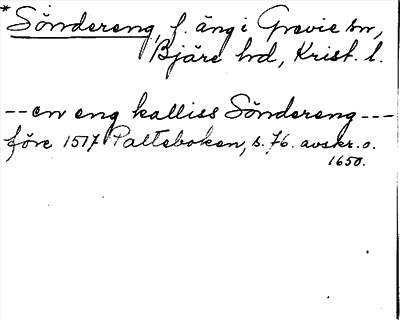 * Söndereng, f. äng i Grevie sn,
Bjäre hd, Krist. l.
-- en eng kalliss Söndereng ---
före 1517 Palteboken, s. 76. avskr. o.
1650.